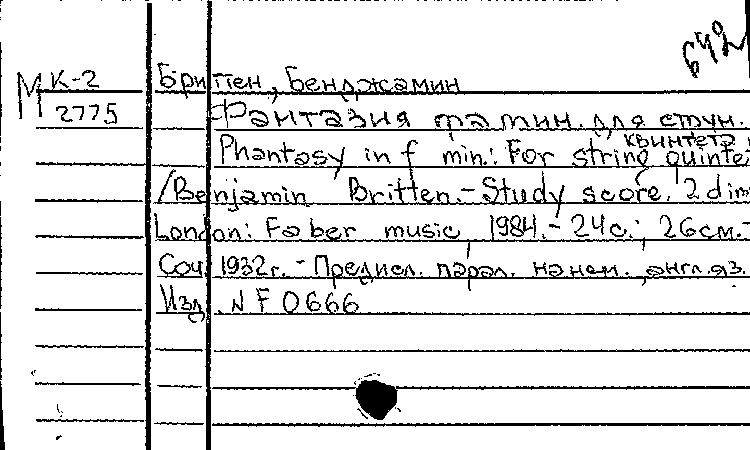 642
М К-2 Бриттен, Бенджамин
2775 Фантазия фа мин. для струн.
квинтета
Phantasy in f min.: For string quinte
/Benjamin Britten.-Study score. 2 dim
London: Faber music, 1984.- 24с.; 26см.-
Соч. 1932г. - Предисл. парал. на нем., англ. яз.
Изд. N F 0666